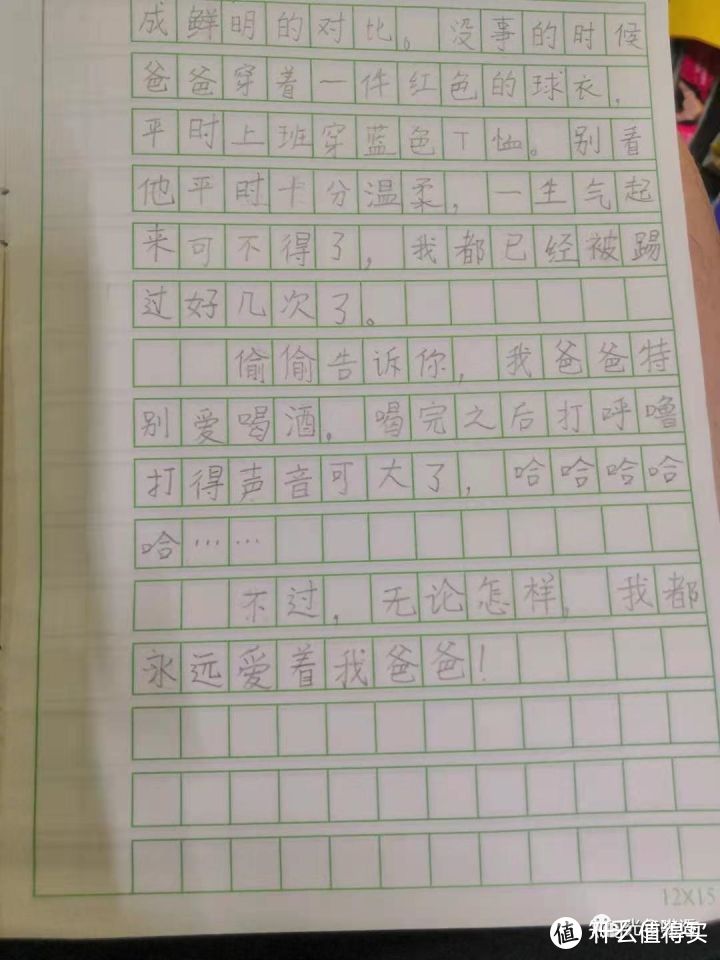 成鲜明的对比。没事的时候
爸爸穿着一件红色的球衣,
平时上班穿蓝色T恤。别看
他平时十分温柔,一生气起
来可不得了,我都已经被踢
过好几次了。
偷偷告诉你,我爸爸特
别爱喝酒。喝完之后打呼噜
打得声音可大了,哈哈哈哈
哈……
不过,无论怎样,我都
永远爱着我爸爸!
12X15
值 什么值得买